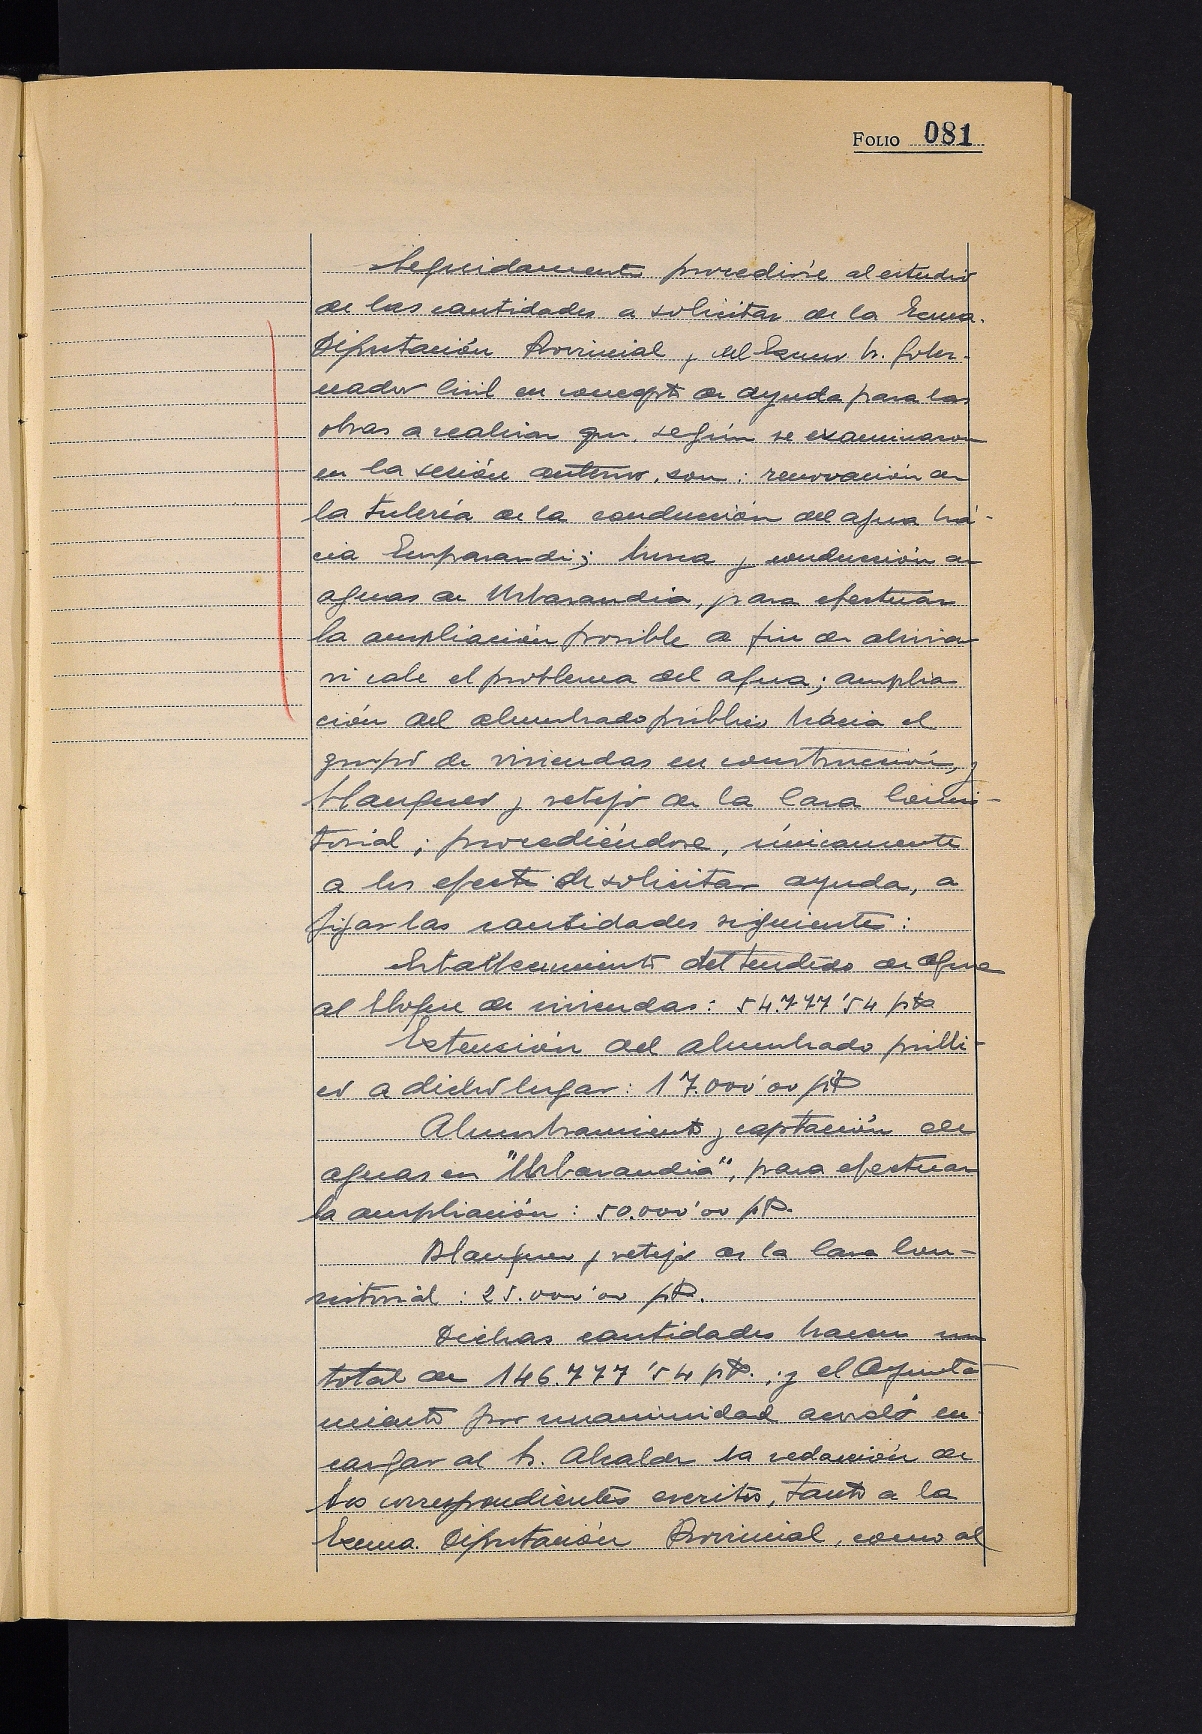 FOLIO 081
Seguidamente procedióse al estudio
de las cantidades a solicitar de la Excma.
Diputación Provincial y del Excmo Sr. Gober-
nador Civil en concepto de ayuda para las
obras a realizar que, según se examinaron
en la sesión anterior, son: renovación de
la tubería de la conducción del agua há-
cia Emparandi; busca y conducción de
aguas de Urbarandia, para efectuar
la ampliación posible a fin de aliviar
si cabe el problema del agua; amplia-
ción del alumbrado público hácia el
grupo de viviendas en construcción, y
blanqueo y retejo de la Casa Consis-
torial; procediéndose, únicamente
a los efectos de solicitar ayuda, a
fijar las cantidades siguientes:
Establecimiento del tendido de agua
al bloque de viviendas: 54.777'54 pts
Extensión del alumbrado públi-
co a dicho lugar: 17.000'00 pts
Alumbramiento y captación de
aguas en "Urbarandia", para efectuar
la ampliación: 50.000'00 pts.
Blanqueo y retejo de la Casa Con-
sistorial: 25.000'00 pts.
Dichas cantidades hacen un
total de 146.777'54 pts.; y el Ayunta-
miento por unanimidad acordó en-
cargar al Sr. Alcalde la redacción de
los correspondientes escritos, tanto a la
Excma. Diputación Provincial, como al